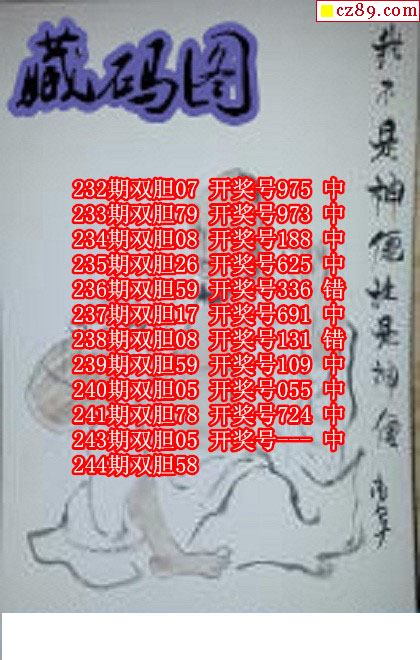 cz89.com
藏码图
232期双胆07 开奖号975 中
233期双胆79 开奖号973 中
234期双胆08 开奖号188 中
235期双胆26 开奖号625 中
236期双胆59 开奖号336 错
237期双胆17 开奖号691 中
238期双胆08 开奖号131 错
239期双胆59 开奖号109 中
240期双胆05 开奖号055 中
241期双胆78 开奖号724 中
243期双胆05 开奖号--- 中
244期双胆58
我不是神仙 是神仙